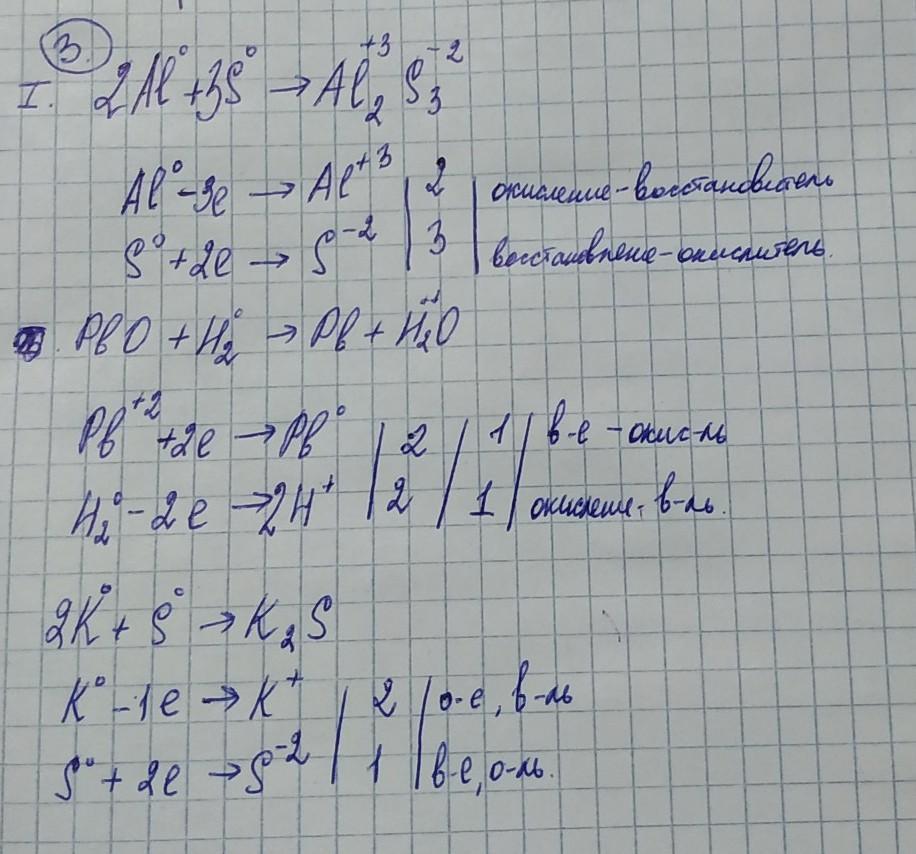 3.
I. 2Al⁰ + 3S⁰ → Al₂⁺³ S₃⁻²
Al⁰ - 3e → Al⁺³ | 2 | окисление - восстановитель
S⁰ + 2e → S⁻² | 3 | восстановлене - окислитель.
PbO + H₂⁰ → Pb + H₂⁺¹O
Pb⁺² + 2e → Pb⁰ | 2 | 1 | в-е - окис-ль
H₂⁰ - 2e → 2H⁺ | 2 | 1 | окисление - в-ль.
2K⁰ + S⁰ → K₂S
K⁰ - 1e → K⁺ | 2 | о-е, в-ль
S⁰ + 2e → S⁻² | 1 | в-е, о-ль.